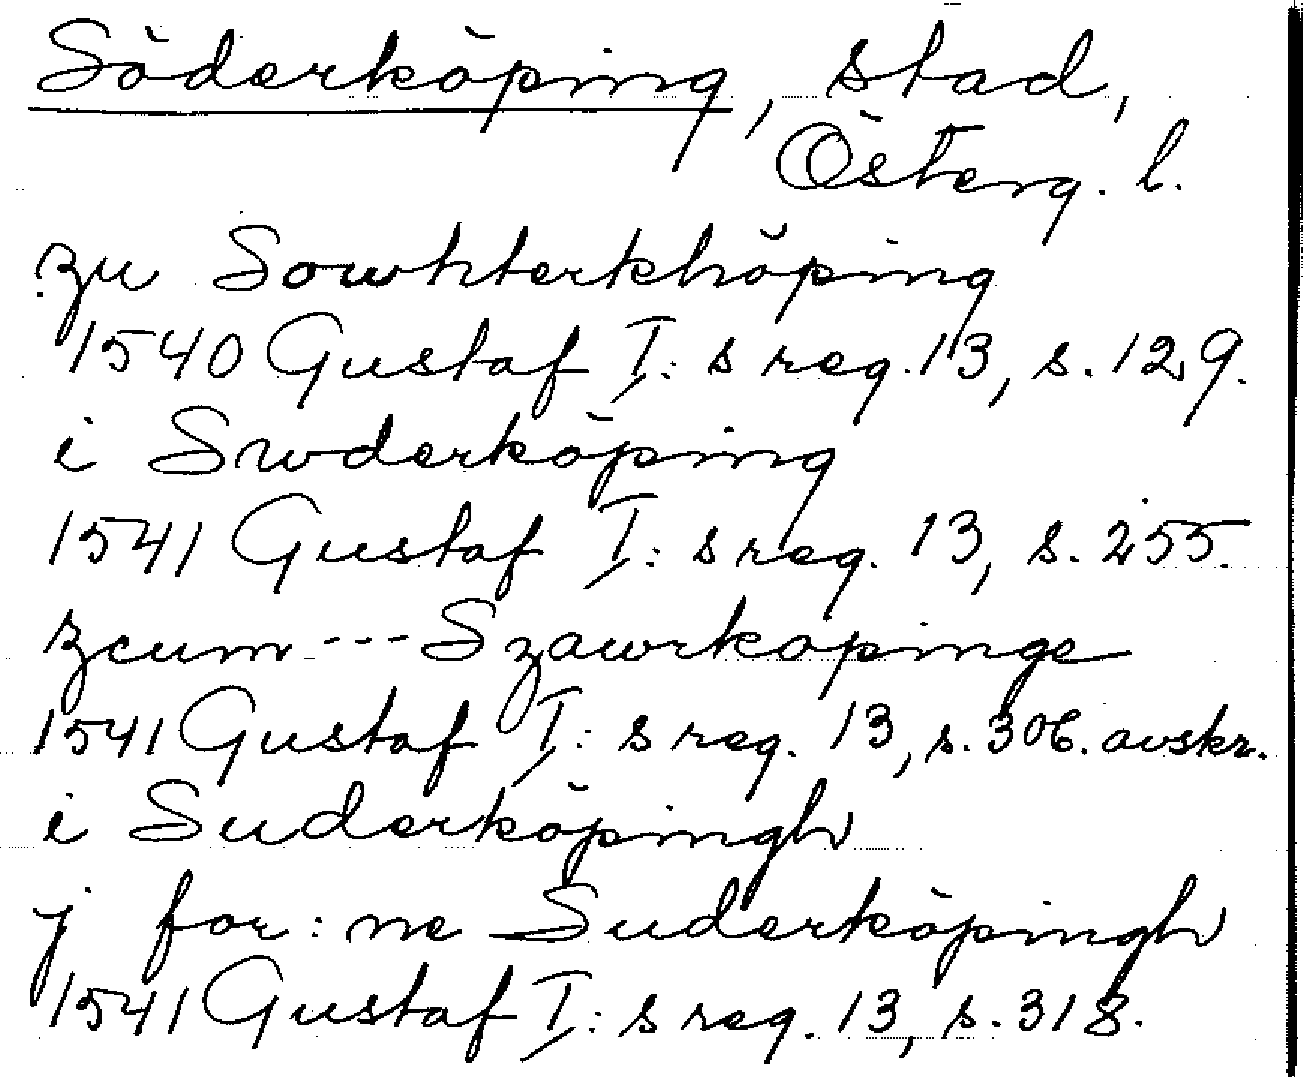 Söderköping, stad,
Österg. l.
zu Sowhterkhöping
1540 Gustaf I:s reg. 13, s. 129.
i Swderköping
1541 Gustaf I:s reg. 13, s. 255.
zcum --- Szawrkopinge
1541 Gustaf I:s reg. 13, s. 306. avskr.
i Suderköpingh
j for:ne Suderköpingh
1541 Gustaf I:s reg. 13, s. 318.